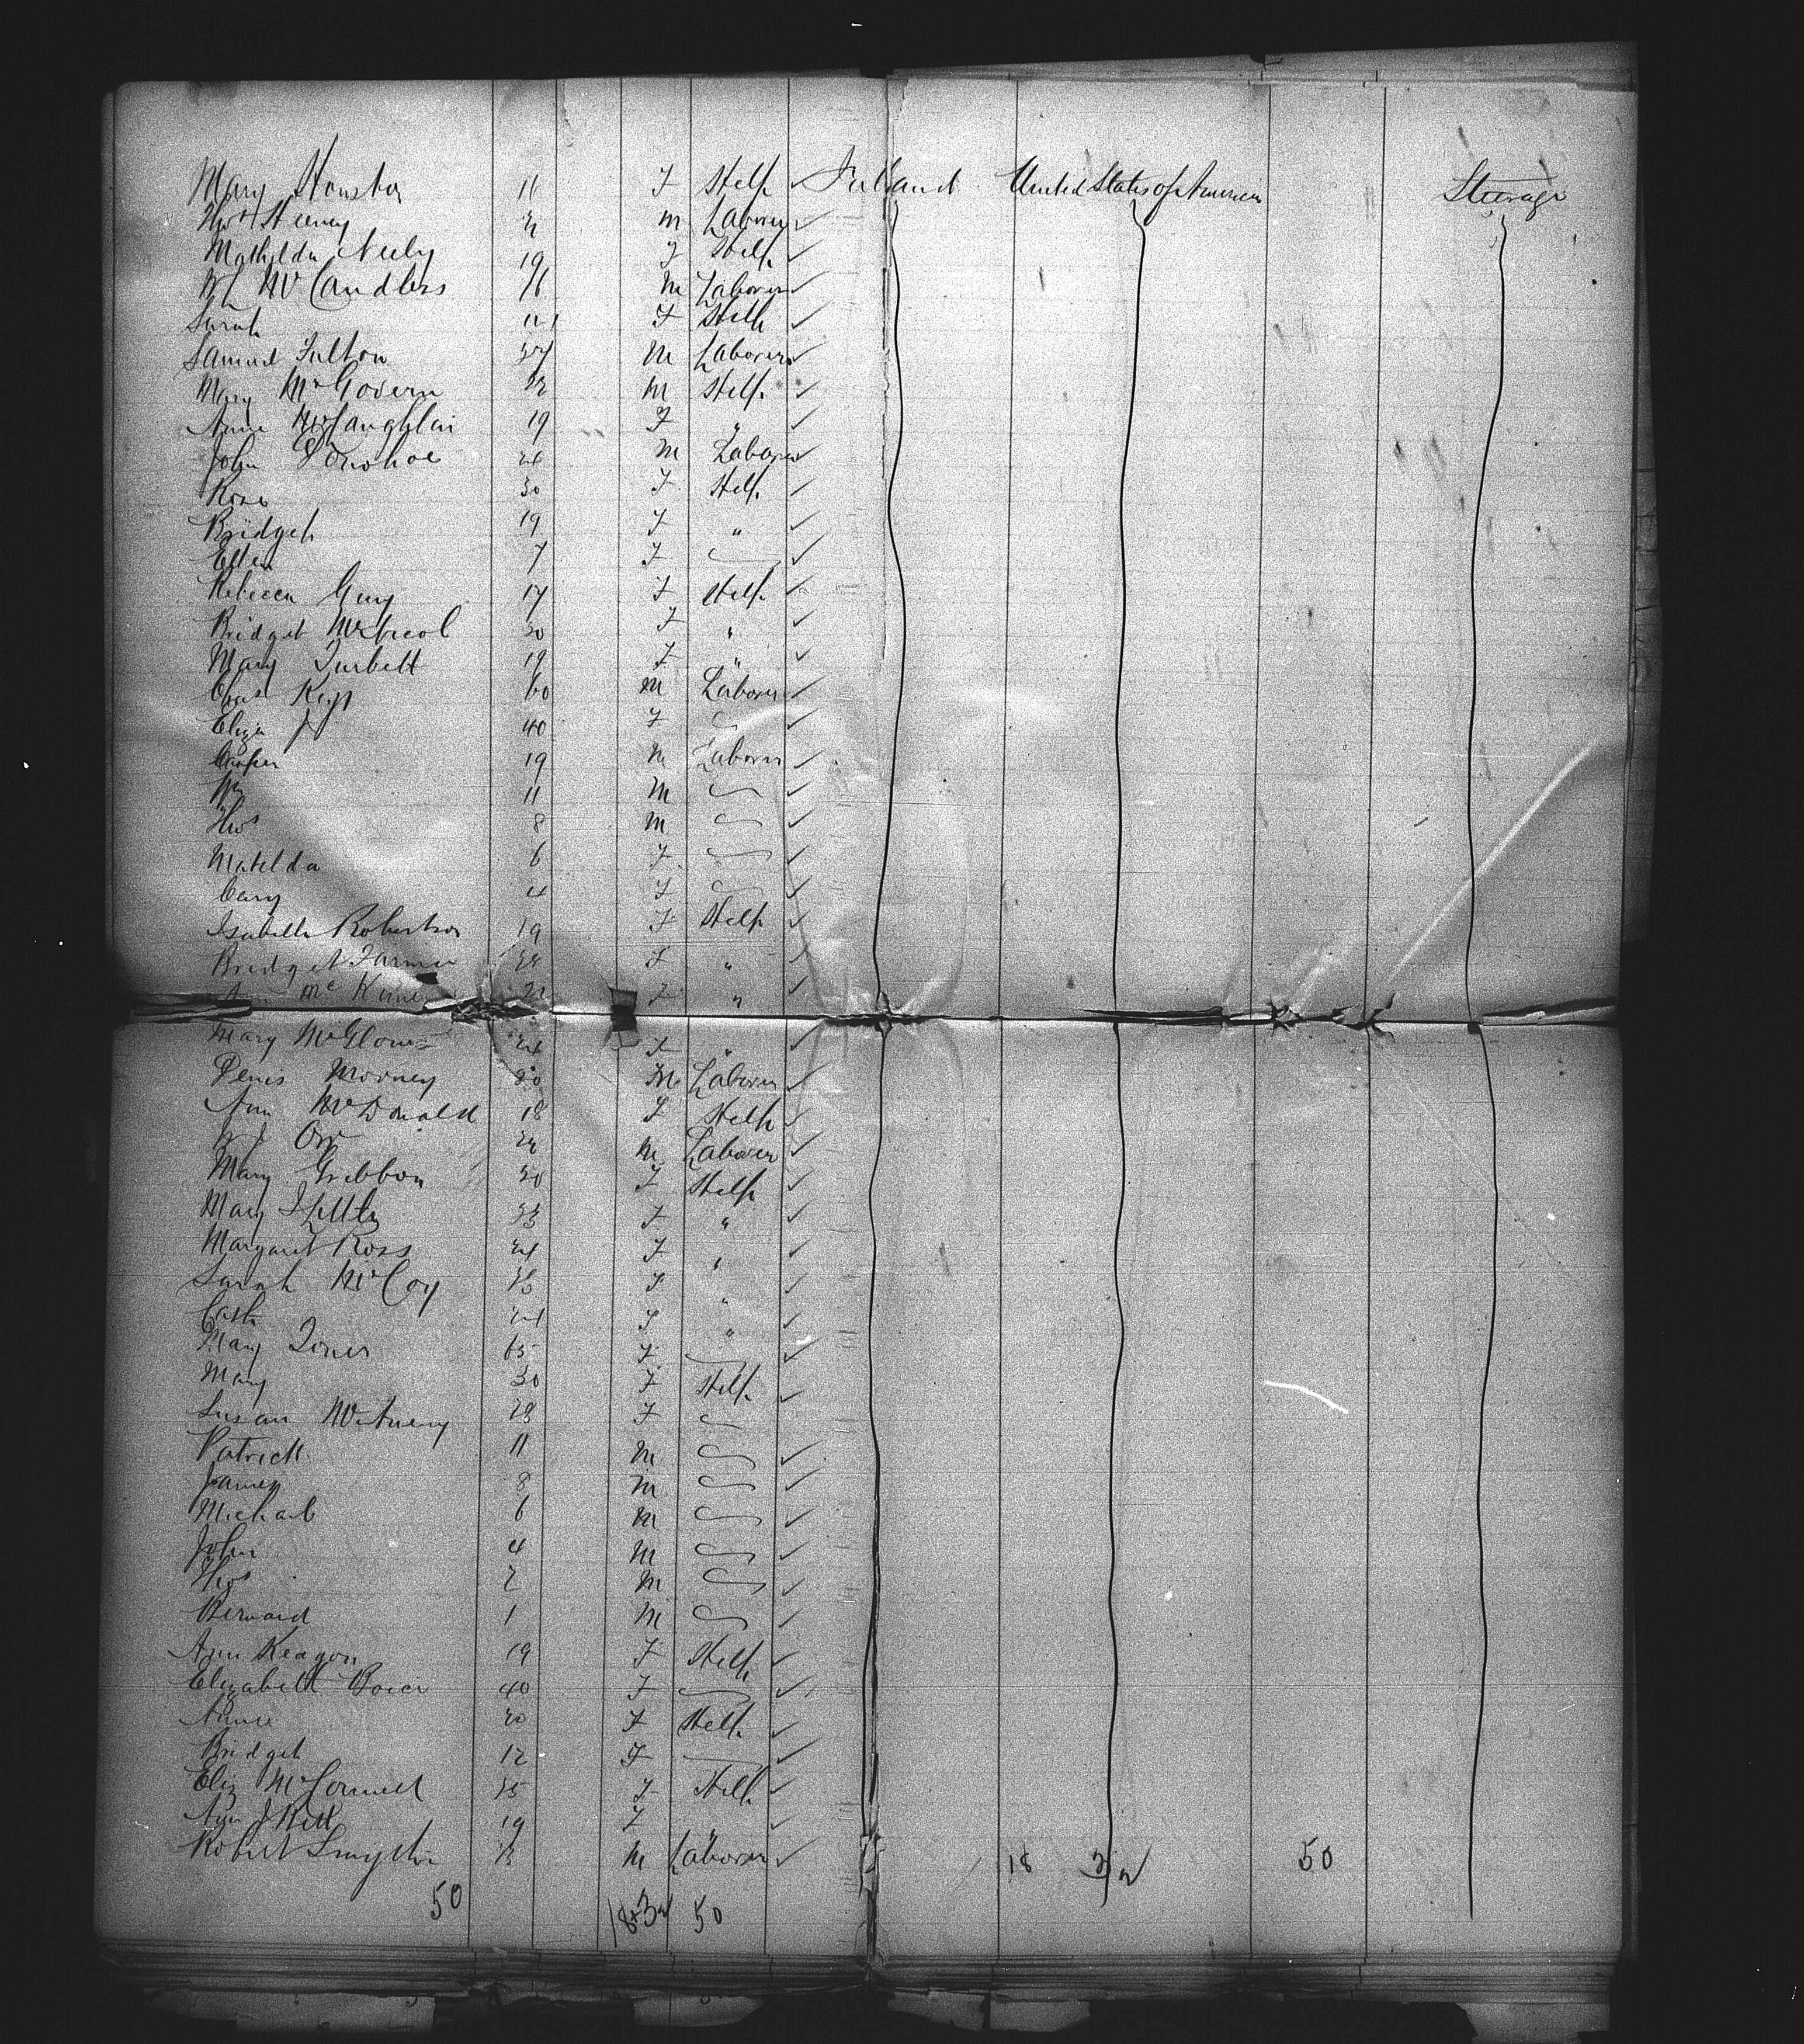 Mary Houston 16 F Help ✓ Ireland United States of America Steerage
Thos Sweeney M Laborer ✓
Mathilda Neely 19 F Help ✓
Wm McCandless 16 M Laborer ✓
Sarah F Help ✓
Samuel Fulton M Laborer ✓
Mary McGovern 22 M Help ✓
Anne McLaughlin 19 F " ✓
John Donohoe 24 M Laborer ✓
Rose 30 F Help ✓
Bridget 19 F " ✓
Ellen 7 F ✓
Rebecca Guy 17 F Help ✓
Bridget 20 F " ✓
Mary Turbett 19 F " ✓
Chas 60 M Laborer ✓
Eliza J 40 F ✓
Casper 19 M Laborer ✓
Wm 11 M ✓
Thos 8 M ✓
Matilda 6 F ✓
Cary 4 F ✓
Isabella Robertson 19 F Help ✓
Bridget Farmer F " ✓
Ann Mc 22 F " ✓
Mary McGlone 24 F " ✓
Denis Mooney 20 M Laborer ✓
Ann McDonald 18 F Help ✓
W J Orr 22 M Laborer ✓
Mary Gribbon 20 F Help ✓
Mary J Little F " ✓
Margaret Ross 24 F " ✓
Sarah McCoy F " ✓
Cath 24 F " ✓
Mary 65 F ✓
Mary 30 F Help ✓
Susan 28 F
Patrick 11 M ✓
James 8 M ✓
Michael 6 M ✓
John 4 M ✓
Thos 2 M ✓
Bernard 1 M ✓
Ann Keagon 19 F Help ✓
Elizabeth Boice 40 F ✓
Annie 20 F Help ✓
Bridget 12 F ✓
Eliz McConnell F Help ✓
Ann J 19 F " ✓
Robert Smyth M Laborer ✓ 18 32 50
50 18+32 50